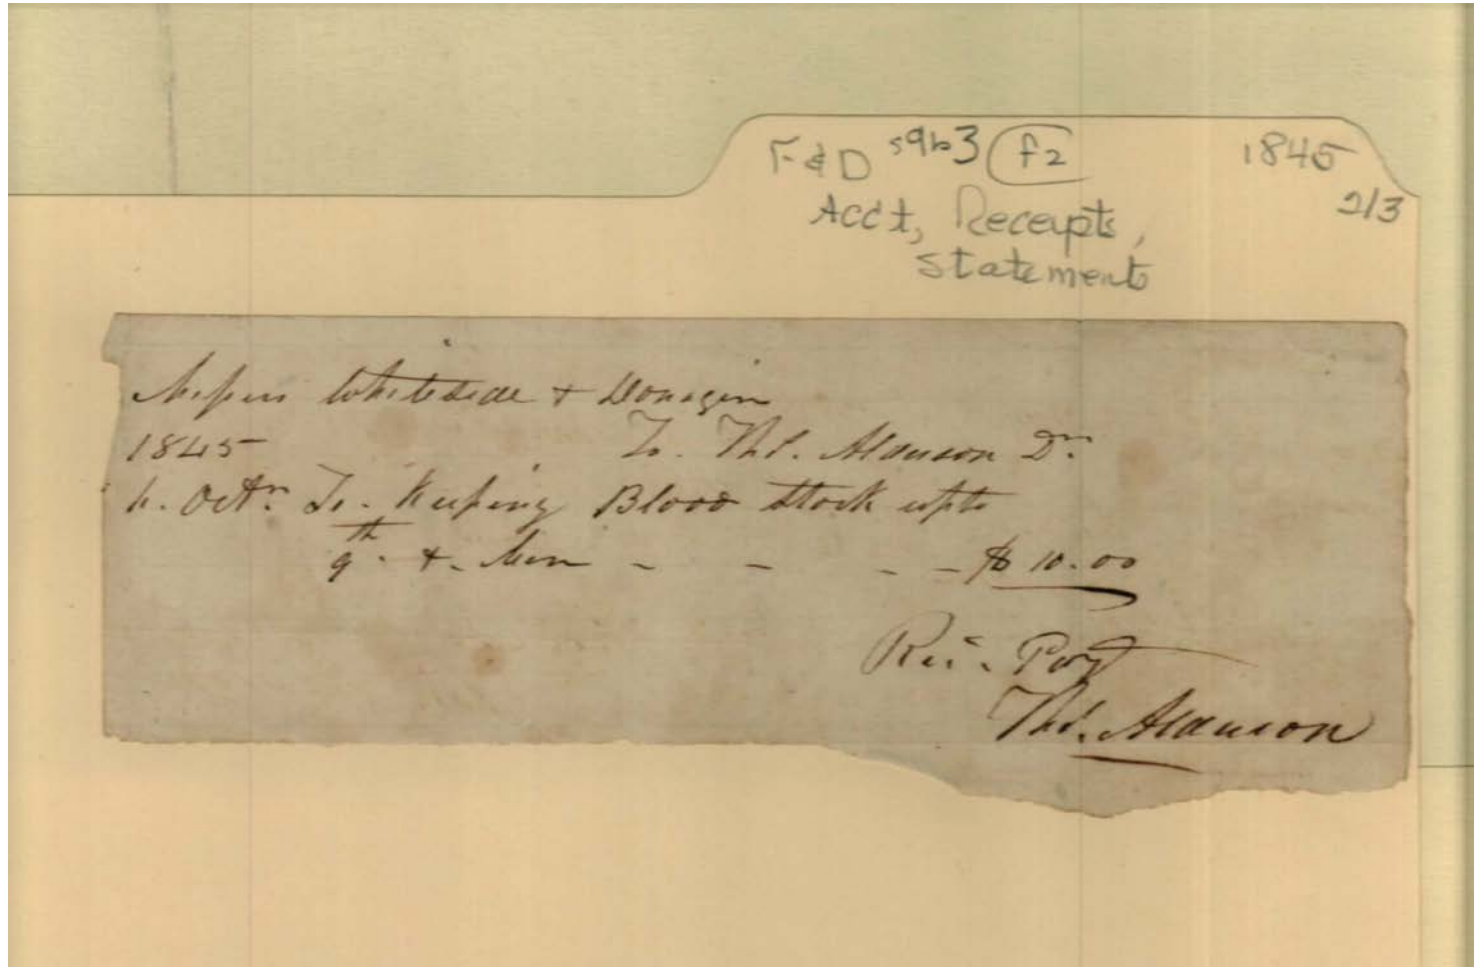 F & D s9b3 f2 1845
2/3
Acct, Receipts,
Statements
Messrs Whiteside & Donegin
1845 To. ThS. Adamson Dr.
Octr. To. Keeping Blood Stock upto
9th. & Men - - - - $10.00
Rec. Payt
ThS. Adamson